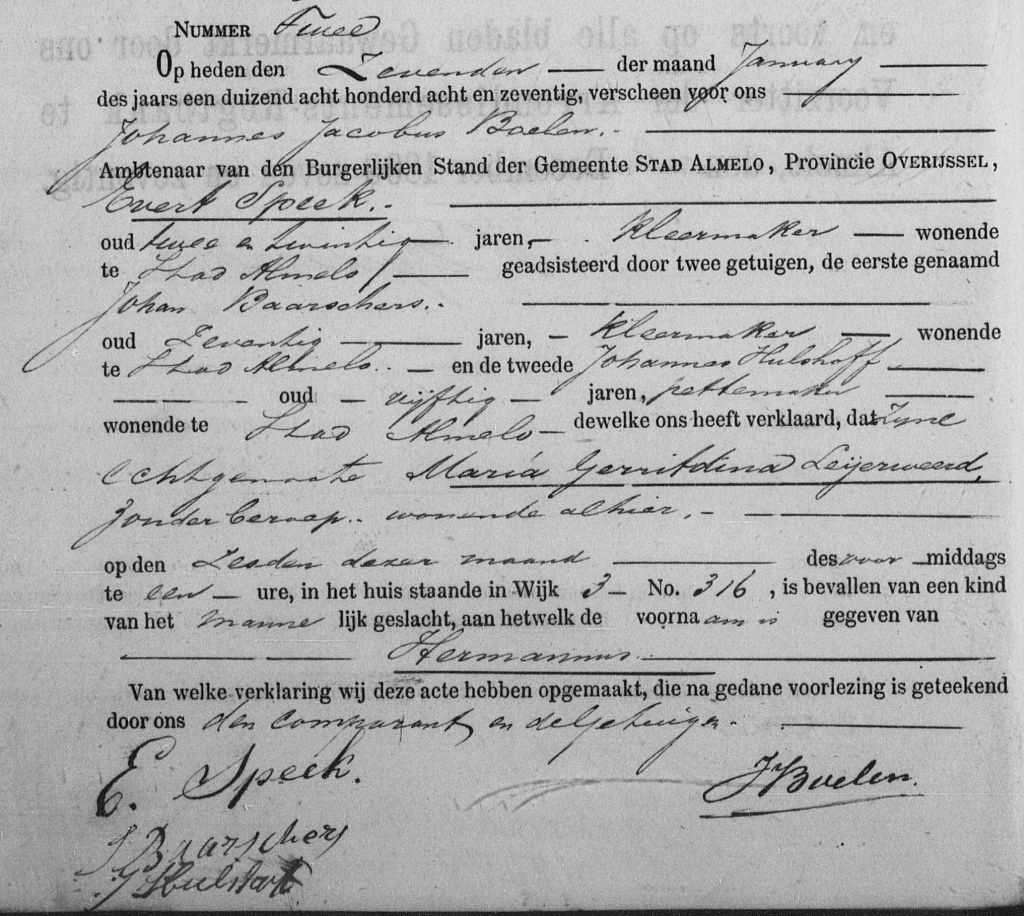 NUMMER Twee
Op heden den Zevenden der maand January
des jaars een duizend acht honderd acht en zeventig, verscheen voor ons
Johannes Jacobus Boelen.
Ambtenaar van den Burgerlijken Stand der Gemeente STAD ALMELO, Provincie OVERIJSSEL,
Evert Speek.
oud twee en twintig jaren, kleermaker wonende
te Stad Almelo geadsisteerd door twee getuigen, de eerste genaamd
Johan Baarschers.
oud Zeventig jaren, kleermaker wonende
te Stad Almelo. en de tweede Johannes Hulshoff
oud vijftig jaren, pettemaker
wonende te Stad Almelo dewelke ons heeft verklaard, dat zyne
Echtgenoote Maria Gerritdina Leijerweerd,
zonder beroep. wonende alhier.
op den Zesden dezer maand des voor middags
te een ure, in het huis staande in Wijk 3 No. 316, is bevallen van een kind
van het manne lijk geslacht, aan hetwelk de voorna am is gegeven van
Hermannus.
Van welke verklaring wij deze acte hebben opgemaakt, die na gedane voorlezing is geteekend
door ons den comparant en de getuigen.
E. Speek.
JJBoelen.
J Baarschers
J Hulshoff